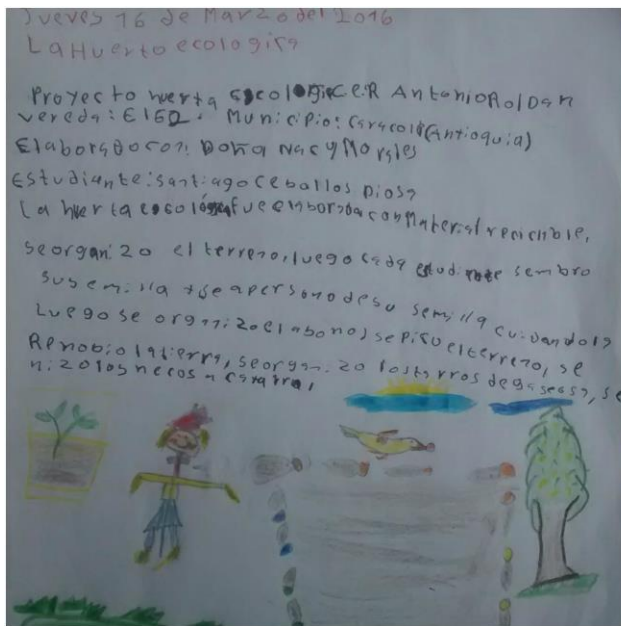 Jueves 16 de Marzo del 2016
La Huerto ecologica
Proyecto huerta C.E.R Antonio Roldan
vereda: El 62. Municipio: (Antioquia)
Elaborado con: Doña Nacy Morales
Estudiante: santiago ceballos
La huerta fue con Material
se organizo el terreno, luego cada estudiante sembro
su semilla se apersono de su semilla cuidandola
Luego se organizo el abono, se pico el terreno, se
Renobio la tierra, se organizo los tarros de gaseosa, se